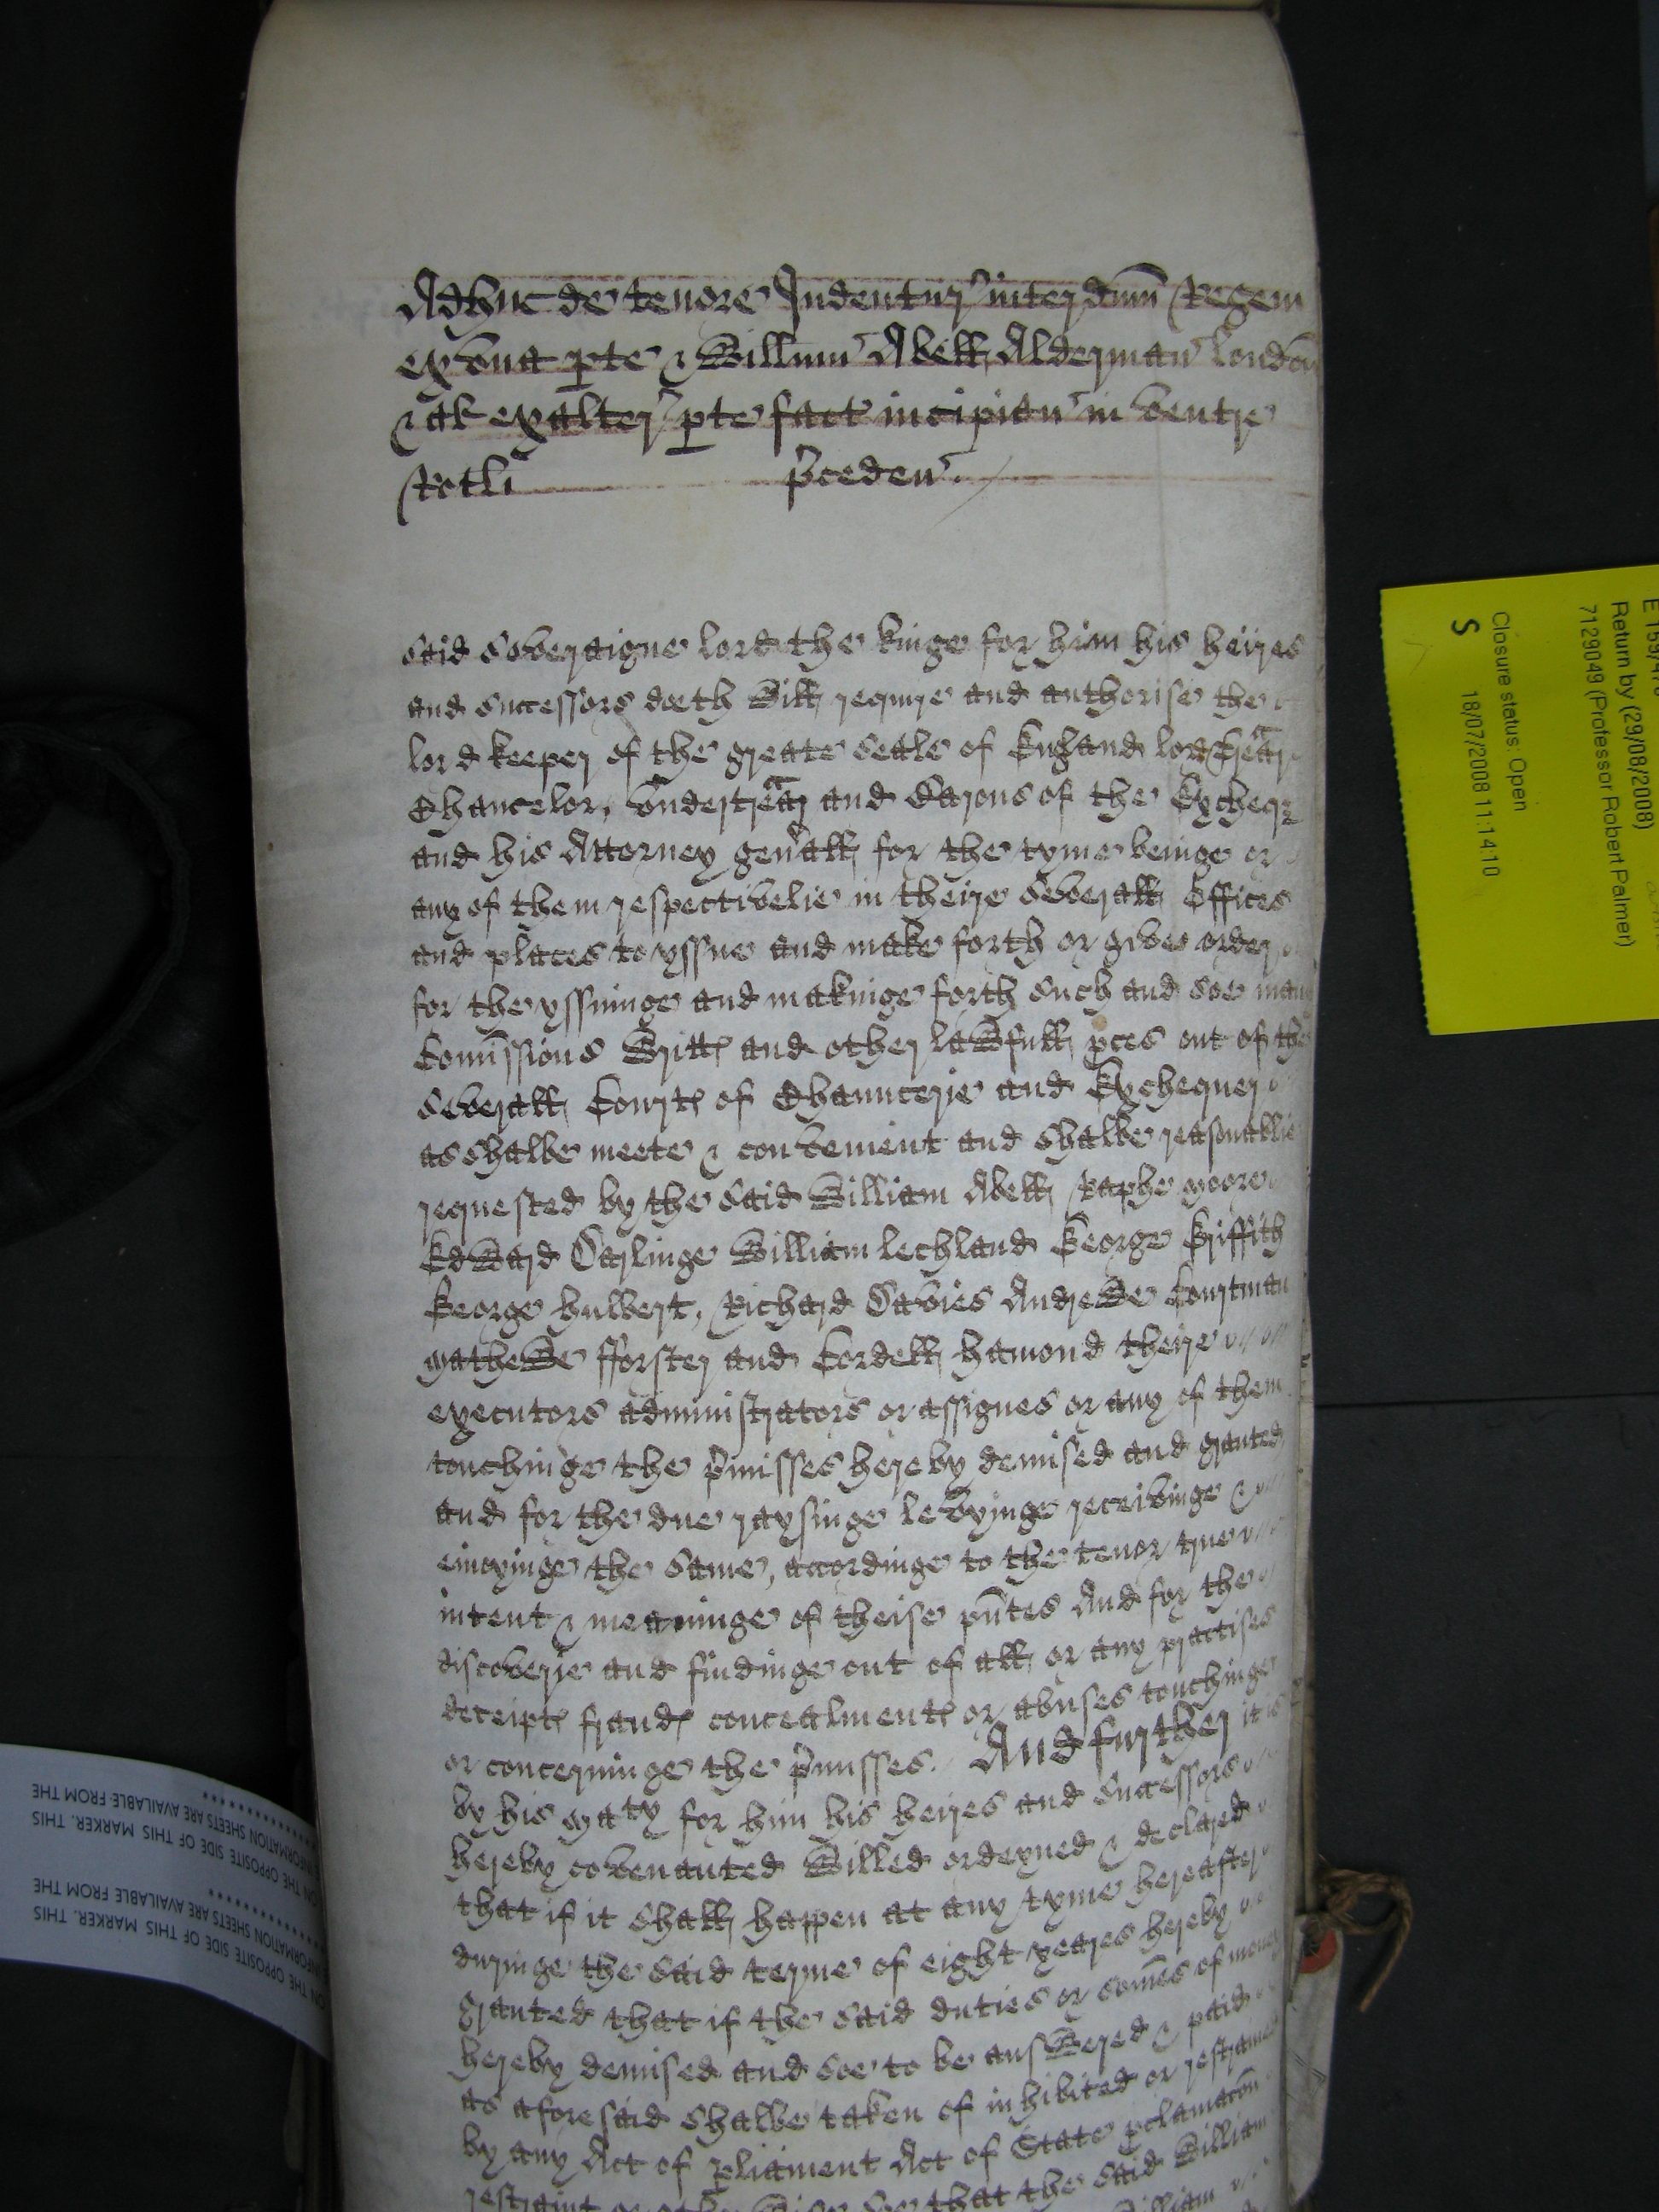 Adhuc de tenore Indentur' inter dnm Regem
ex una pte & Willmu' Abell Alderman' London
& al ex alter' pte fact incipien' in ventre
Rotli p'ceden'.
said Soveraigne lord the kinge for him his heires
and successors doeth will require and authorise the
lord keeper of the greate Seale of England lord Trear
Chancelor, Undertrear and Barons of the Excheqr
and his Attorney gen'all for the tyme beinge or
any of them respectivelie in theire severall Offices
and places to yssue and make forth or gives order
for the yssuinge and makinge forth such and soe many
Comissions Writts and other lawfull pces out of the
severall Courts of Chauncerie and Exchequer
as shalbe meete & convenient and shalbe reasonablie
requested by the said William Abell, Raphe Moore
Edward Darlinge William Lechland George Griffith
George hulbert, Richard Davies Andrewe Courtman
Mathewe fforster and Cordell hamond theire
executors administrators or assignes or any of them
touchinge the p'misses hereby demised and granted
and for the due raysinge levyinge receivinge &
enioyinge the same, accordinge to the tenor true
intent & meaninge of theise pntes And for the
discoverie and findinge out of all or any practises
deceipts frauds concealments or abuses touchinge
or concerninge the p'misses. And further it is
by his Maty for him his heires and successors
hereby covenanted willed ordeyned & declared
that if it shall happen at any tyme hereafter
duringe the said terme of eight yeares hereby
granted that if the said duties or somes of money
hereby demised and soe to be answered & paid
as aforesaid shalbe taken of inhibited or restrained
by any Act of pliament Act of State pclamacon
restraint or other soe that the said William
William
E 159/
Return by (29/08/2008)
7129049 (Professor Robert Palmer)
Closure status: Open
S 18/07/2008 11:14:10
ON THE OPPOSITE SIDE OF THIS MARKER. THIS
INFORMATION SHEETS ARE AVAILABLE FROM THE
ON THE OPPOSITE SIDE OF THIS MARKER. THIS
INFORMATION SHEETS ARE AVAILABLE FROM THE